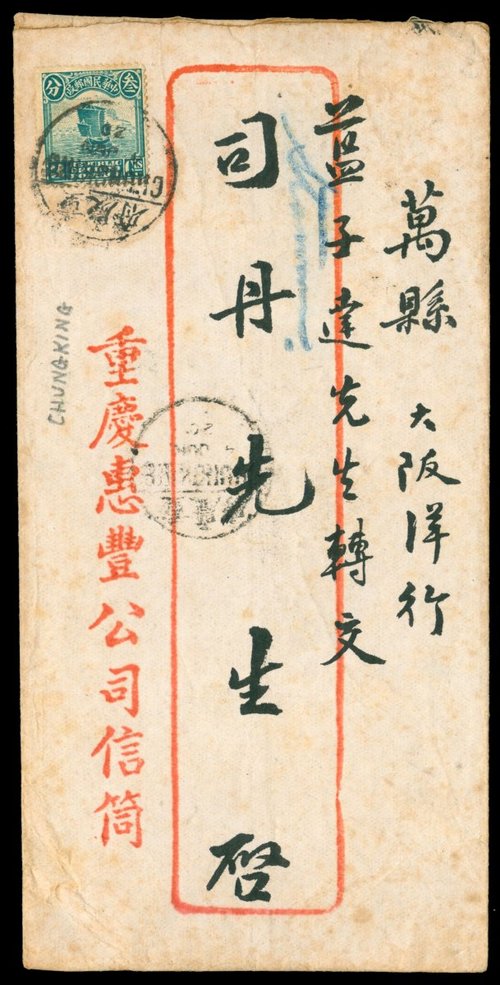 萬縣 大阪洋行
藍子達先生轉交
司丹先生啓
重慶惠豐公司信筒
CHUNGKING
中華民國郵政
叁
分